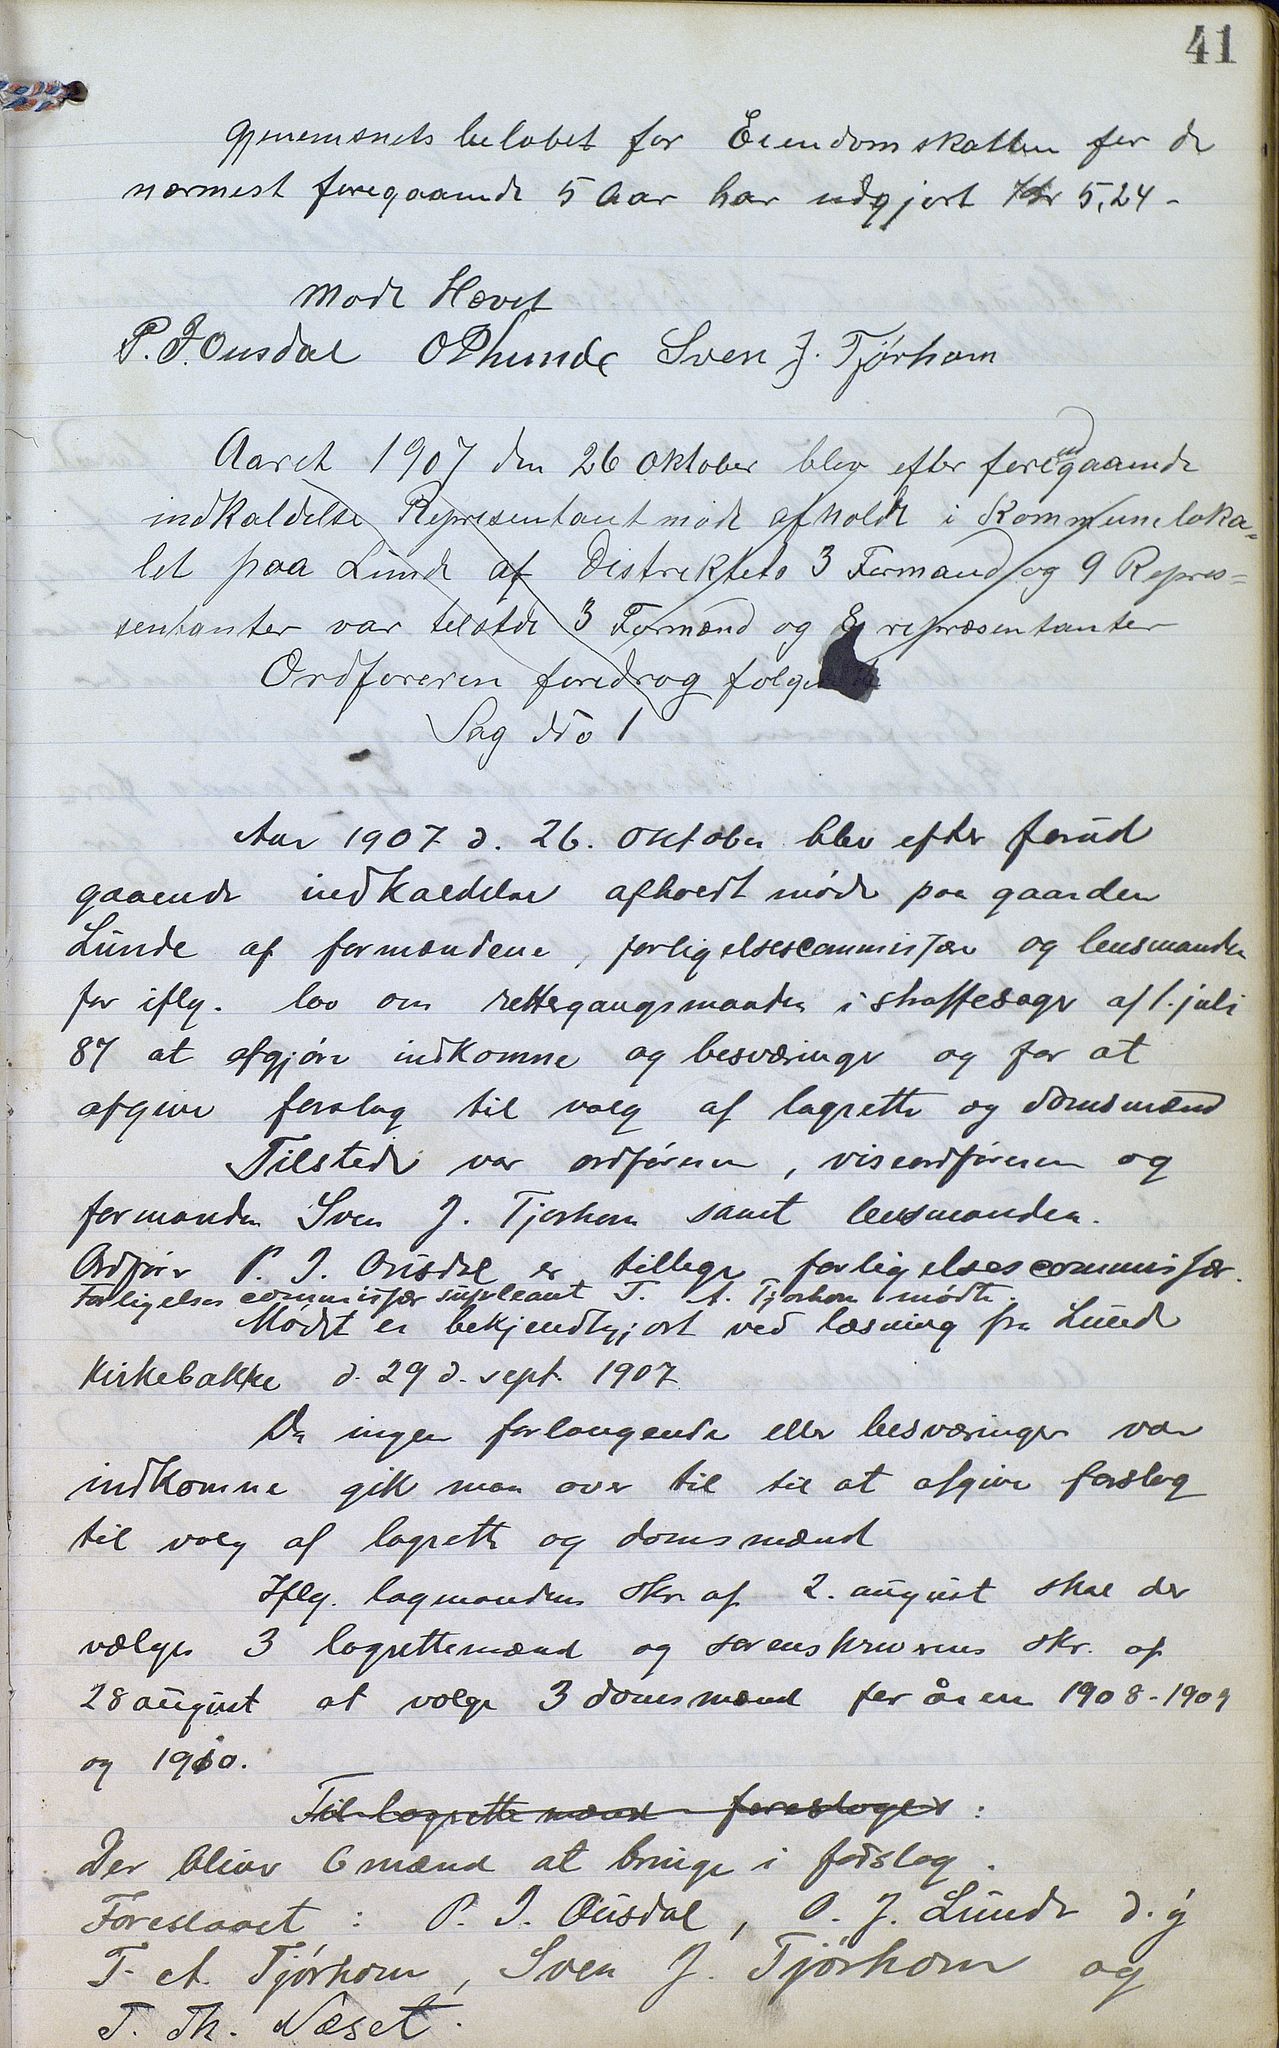 41
gjenemsnets beløbet for Eiendomskatten for de
nærmest foregaaende 5 Aar har udgjort Kr 5,24 -
Møde Hævet
P. J. Ousdal O P Lunde Sven J. Tjørhom
Aaret 1907 den 26 Oktober blev efter foregaaende
indkaldelse Representantmøde afholdt i Kommuneloka=
let paa Lunde af Distriktets 3 Formænd og 9 Repres=
sentanter var tilstde 3 Formænd og 8 repræsentanter
Ordføreren foredrog følgende
Sag No 1
Aar 1907 d. 26. oktober blev efter forud
gaaende indkaldelse afholdt møde paa gaarden
Lunde af formændene, forligelsescommissær og lensmanden
for iflg. lov om rettergangsmaaden i straffesager af 1. juli
87 at afgjøre indkomne og besværinger og for at
afgive forslag til valg af lagrette og domsmænd
Tilstede var ordføreren, viseordføreren og
formanden Sven J. Tjørhom samt lensmanden.
Ordfører P. J. Ousdal er tillege forligelsescommissær.
Forligelsescommissær supleant T. A. Tjørhom mødte.
Mødet er bekjendtgjort ved læsning fra Lunde
Kirkebakke d. 29 d. sept. 1907
Da ingen forlangende eller besværinger var
indkomne gik man over til til at afgive forslag
til valg af lagrette og domsmænd
Iflg. lagmandens skr. af 2. august skal der
vælges 3 lagrettemænd og sorenskriverens skr. af
28 august at vælge 3 domsmænd for åren 1908-1909
og 1910.
Til lagrettemænd foresloges:
Der bliver 6 mænd at bringe i forslag.
Foreslaaet: P. J. Ousdal, O. J. Lunde d. y
T. A. Tjørhom, Sven J. Tjørhom og
T. Th. Næset.